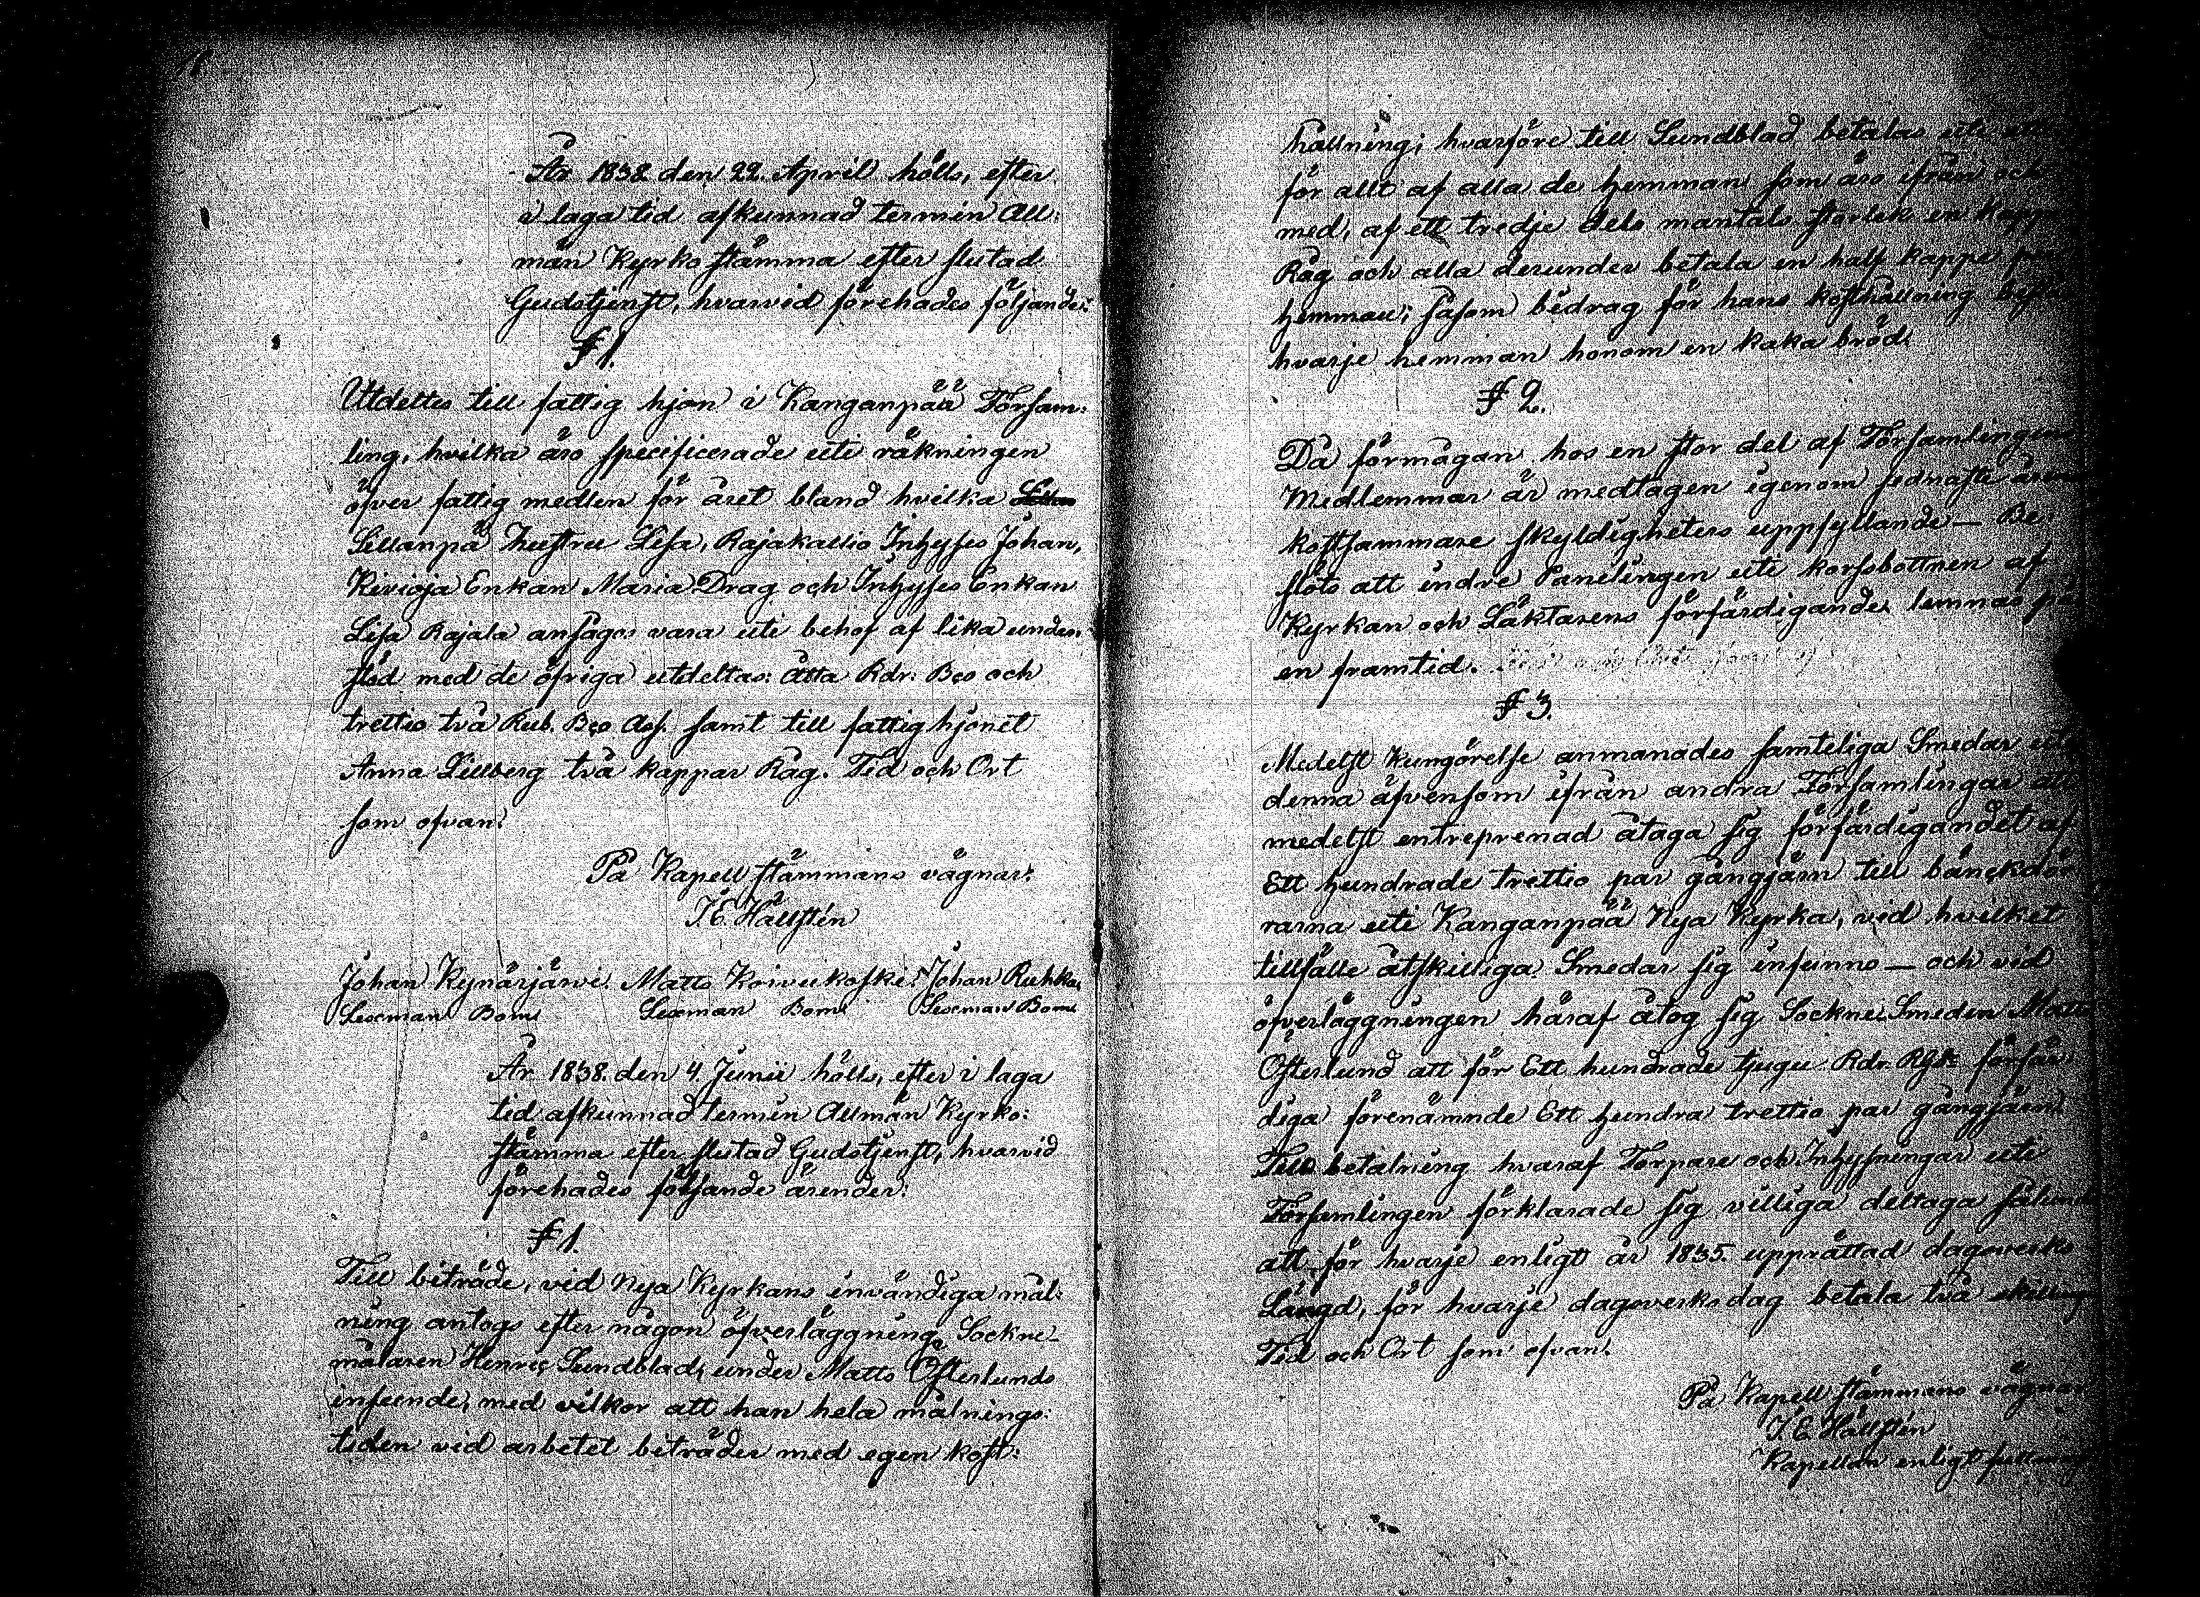 År 1838 den 22. April hölls, efter
i laga tid afkunnad termin All:
män Kyrko stämma efter slutad
Gudstjenst, hvarvid förehades följande:
§ 1.
Utdeltes till fattig hjon i Kanganpää Försam:
ling, hvilka äro specificerade uti räkningen
öfver fattig medlen för året bland hvilka
Sillanpä Hustru Lisa, Rajakallio Inhyses Johan,
Kivioja Enkan Maria Drag och Inhyses Enkan
Lisa Rajala ansågos vara uti behof af lika under:
stöd med de öfriga utdeltas: Åtta Rdr: Bco och
trettio två Rub. Bco Ass. samt till fattighjonet
Anna Lillberg två kappar Råg. Tid och Ort
som ofvan.
På Kapell stämmans vägnar:
I. E. Hällstén
Johan Kynärjärvi. Matts Koivukoski. Johan Ruhka
Sexman Bom. Sexman Bom. Sexman Bom.
År 1838. den 4. Junii hölls, efter i laga
tid afkunnad termin Allmän Kyrko:
stämma efter slutad Gudstjenst, hvarvid
förehades följande ärender:
§ 1.
Till biträde, vid Nya Kyrkans invändiga mål:
ning antogs efter någon öfverläggning Sockne-
målaren Henric Sundblad, under Matts Österlunds
inseende, med vilkor att han hela målnings:
tiden vid arbetet biträder med egen kost:
hållning; hvarföre till Sundblad betalas uti ett
för allt af alla de hemman som äro ifrån och
med, af ett tredje dels mantals storlek en kappe
Råg och alla derunder betala en half kappe
hemman; såsom bidrag för hans kosthållning
hvarje hemman honom en kaka bröd.
§ 2.
Då förmågan hos en stor del af Församlingens
Medlemmar är medtagen igenom sednaste årens
kostsammare skyldigheters uppfyllande — Be:
slöts att indre Panelingen uti korsbottnen af
Kyrkan och Läktarens förfärdigande lemnas på
en framtid.
§ 3.
Medelst Kungörelse anmanades samteliga Smedar uti
denna äfvensom ifrån andra Församlingar att
medelst entreprenad åtaga sig förfärdigandet af
Ett hundrade trettio par gångjärn till bänckdör
rarna uti Kanganpää Nya Kyrka, vid hvilket
tillfälle åtskilliga Smedar sig infunno — och vid
öfverläggningen häraf åtog sig Sockne Smeden Matts
Österlund att för Ett hundrade tjugu Rdr. Rgs förfär
diga förenämnde Ett hundra trettio par gångjärn
Till betalning hvaraf Torpare och Inhysningar uti
Församlingen förklarade sig villiga deltaga sålunda
att för hvarje enligt år 1835. upprättad dagsverks
Längd, för hvarje dagsverksdag betala två skilling
Tid och Ort som ofvan.
På Kapell stämmans vägnar
I. E. Hällstén
Kapellan enligt fullmagt